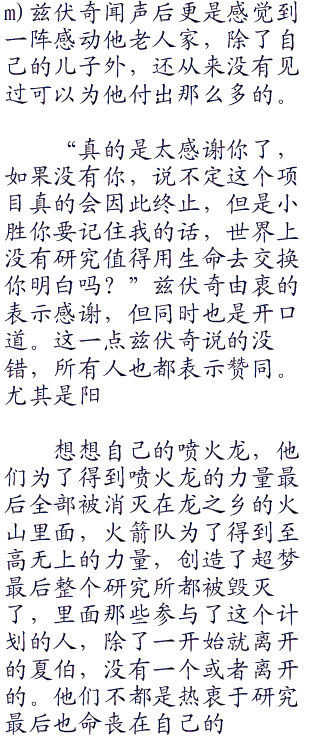 m)兹伏奇闻声后更是感觉到
一阵感动他老人家，除了自
己的儿子外，还从来没有见
过可以为他付出那么多的。
“真的是太感谢你了，
如果没有你，说不定这个项
目真的会因此终止，但是小
胜你要记住我的话，世界上
没有研究值得用生命去交换
你明白吗？”兹伏奇由衷的
表示感谢，但同时也是开口
道。这一点兹伏奇说的没
错，所有人也都表示赞同。
尤其是阳
想想自己的喷火龙，他
们为了得到喷火龙的力量最
后全部被消灭在龙之乡的火
山里面，火箭队为了得到至
高无上的力量，创造了超梦
最后整个研究所都被毁灭
了，里面那些参与了这个计
划的人，除了一开始就离开
的夏伯，没有一个或者离开
的。他们不都是热衷于研究
最后也命丧在自己的